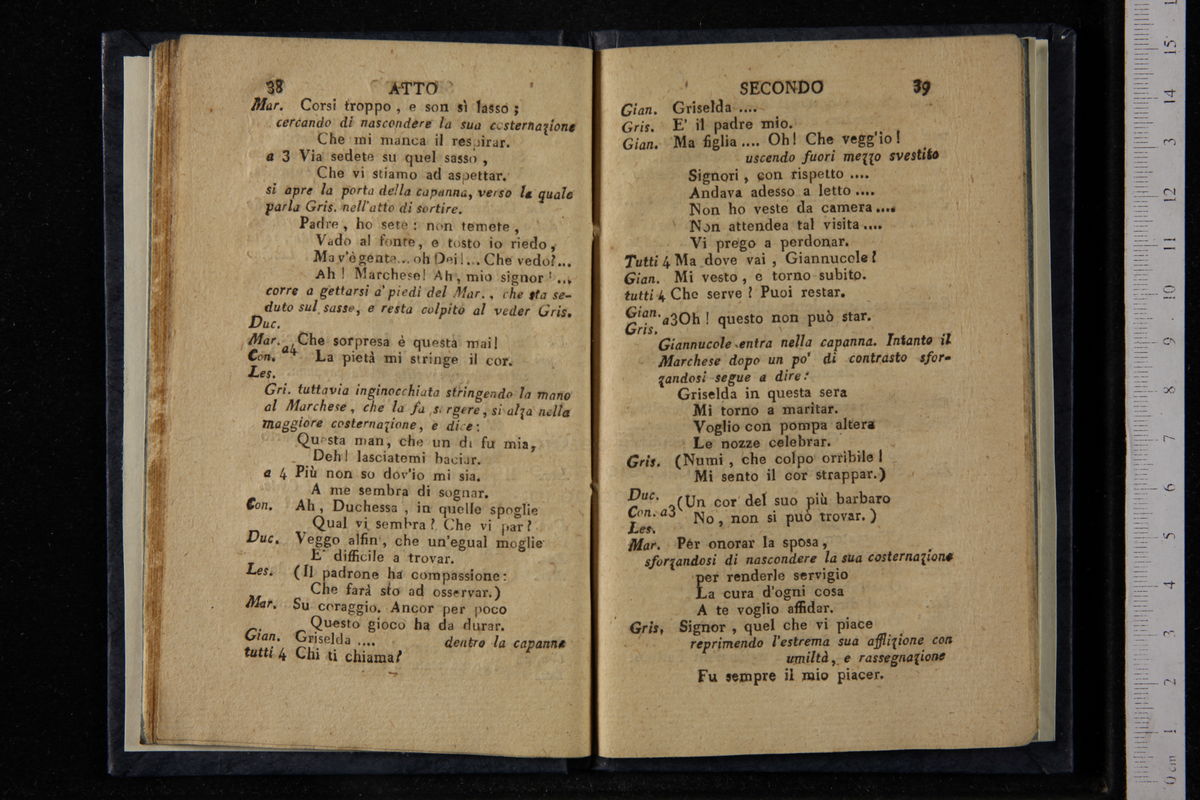 38 ATTO
Mar. Corsi troppo, e son sì lasso;
cercando di nascondere la sua costernazione
Che mi manca il respirar.
a 3 Via sedete su quel sasso,
Che vi stiamo ad aspettar.
si apre la porta della capanna, verso la quale
parla Gris. nell'atto di sortire.
Padre, ho sete: non temete,
Vado al fonte, e tosto io riedo,
Ma v'è gente... oh Dei!... Che vedo?...
Ah! Marchese! Ah, mio signor!...
corre a gettarsi a' piedi del Mar., che sta se-
duto sul sasso, e resta colpito al veder Gris.
Duc.
Mar. Che sorpresa è questa mai!
Con. a4 La pietà mi stringe il cor.
Les.
Gri. tuttavia inginocchiata stringendo la mano
al Marchese, che la fa sorgere, si alza nella
maggiore costernazione, e dice:
Questa man, che un dì fu mia,
Deh! lasciatemi baciar.
a 4 Più non so dov'io mi sia.
A me sembra di sognar.
Con. Ah, Duchessa, in quelle spoglie
Qual vi sembra? Che vi par?
Duc. Veggo alfin, che un'egual moglie
E' difficile a trovar.
Les. (Il padrone ha compassione:
Che farà sto ad osservar.)
Mar. Su coraggio. Ancor per poco
Questo gioco ha da durar.
Gian. Griselda .... dentro la capanna
tutti 4 Chi ti chiama?
SECONDO 39
Gian. Griselda ....
Gris. E' il padre mio.
Gian. Ma figlia .... Oh! Che vegg'io!
uscendo fuori mezzo svestito
Signori, con rispetto ....
Andava adesso a letto ....
Non ho veste da camera ....
Non attendea tal visita ....
Vi prego a perdonar.
Tutti 4 Ma dove vai, Giannucole?
Gian. Mi vesto, e torno subito.
tutti 4 Che serve? Puoi restar.
Gian. a3 Oh! questo non può star.
Gris.
Giannucole entra nella capanna. Intanto il
Marchese dopo un po' di contrasto sfor-
zandosi segue a dire:
Griselda in questa sera
Mi torno a maritar.
Voglio con pompa altera
Le nozze celebrar.
Gris. (Numi, che colpo orribile!
Mi sento il cor strappar.)
Duc. (Un cor del suo più barbaro
Con. a3 No, non si può trovar.)
Les.
Mar. Per onorar la sposa,
sforzandosi di nascondere la sua costernazione
per renderle servigio
La cura d'ogni cosa
A te voglio affidar.
Gris, Signor, quel che vi piace
reprimendo l'estrema sua afflizione con
umiltà, e rassegnazione
Fu sempre il mio piacer.
0 cm 1 2 3 4 5 6 7 8 9 10 11 12 13 14 15